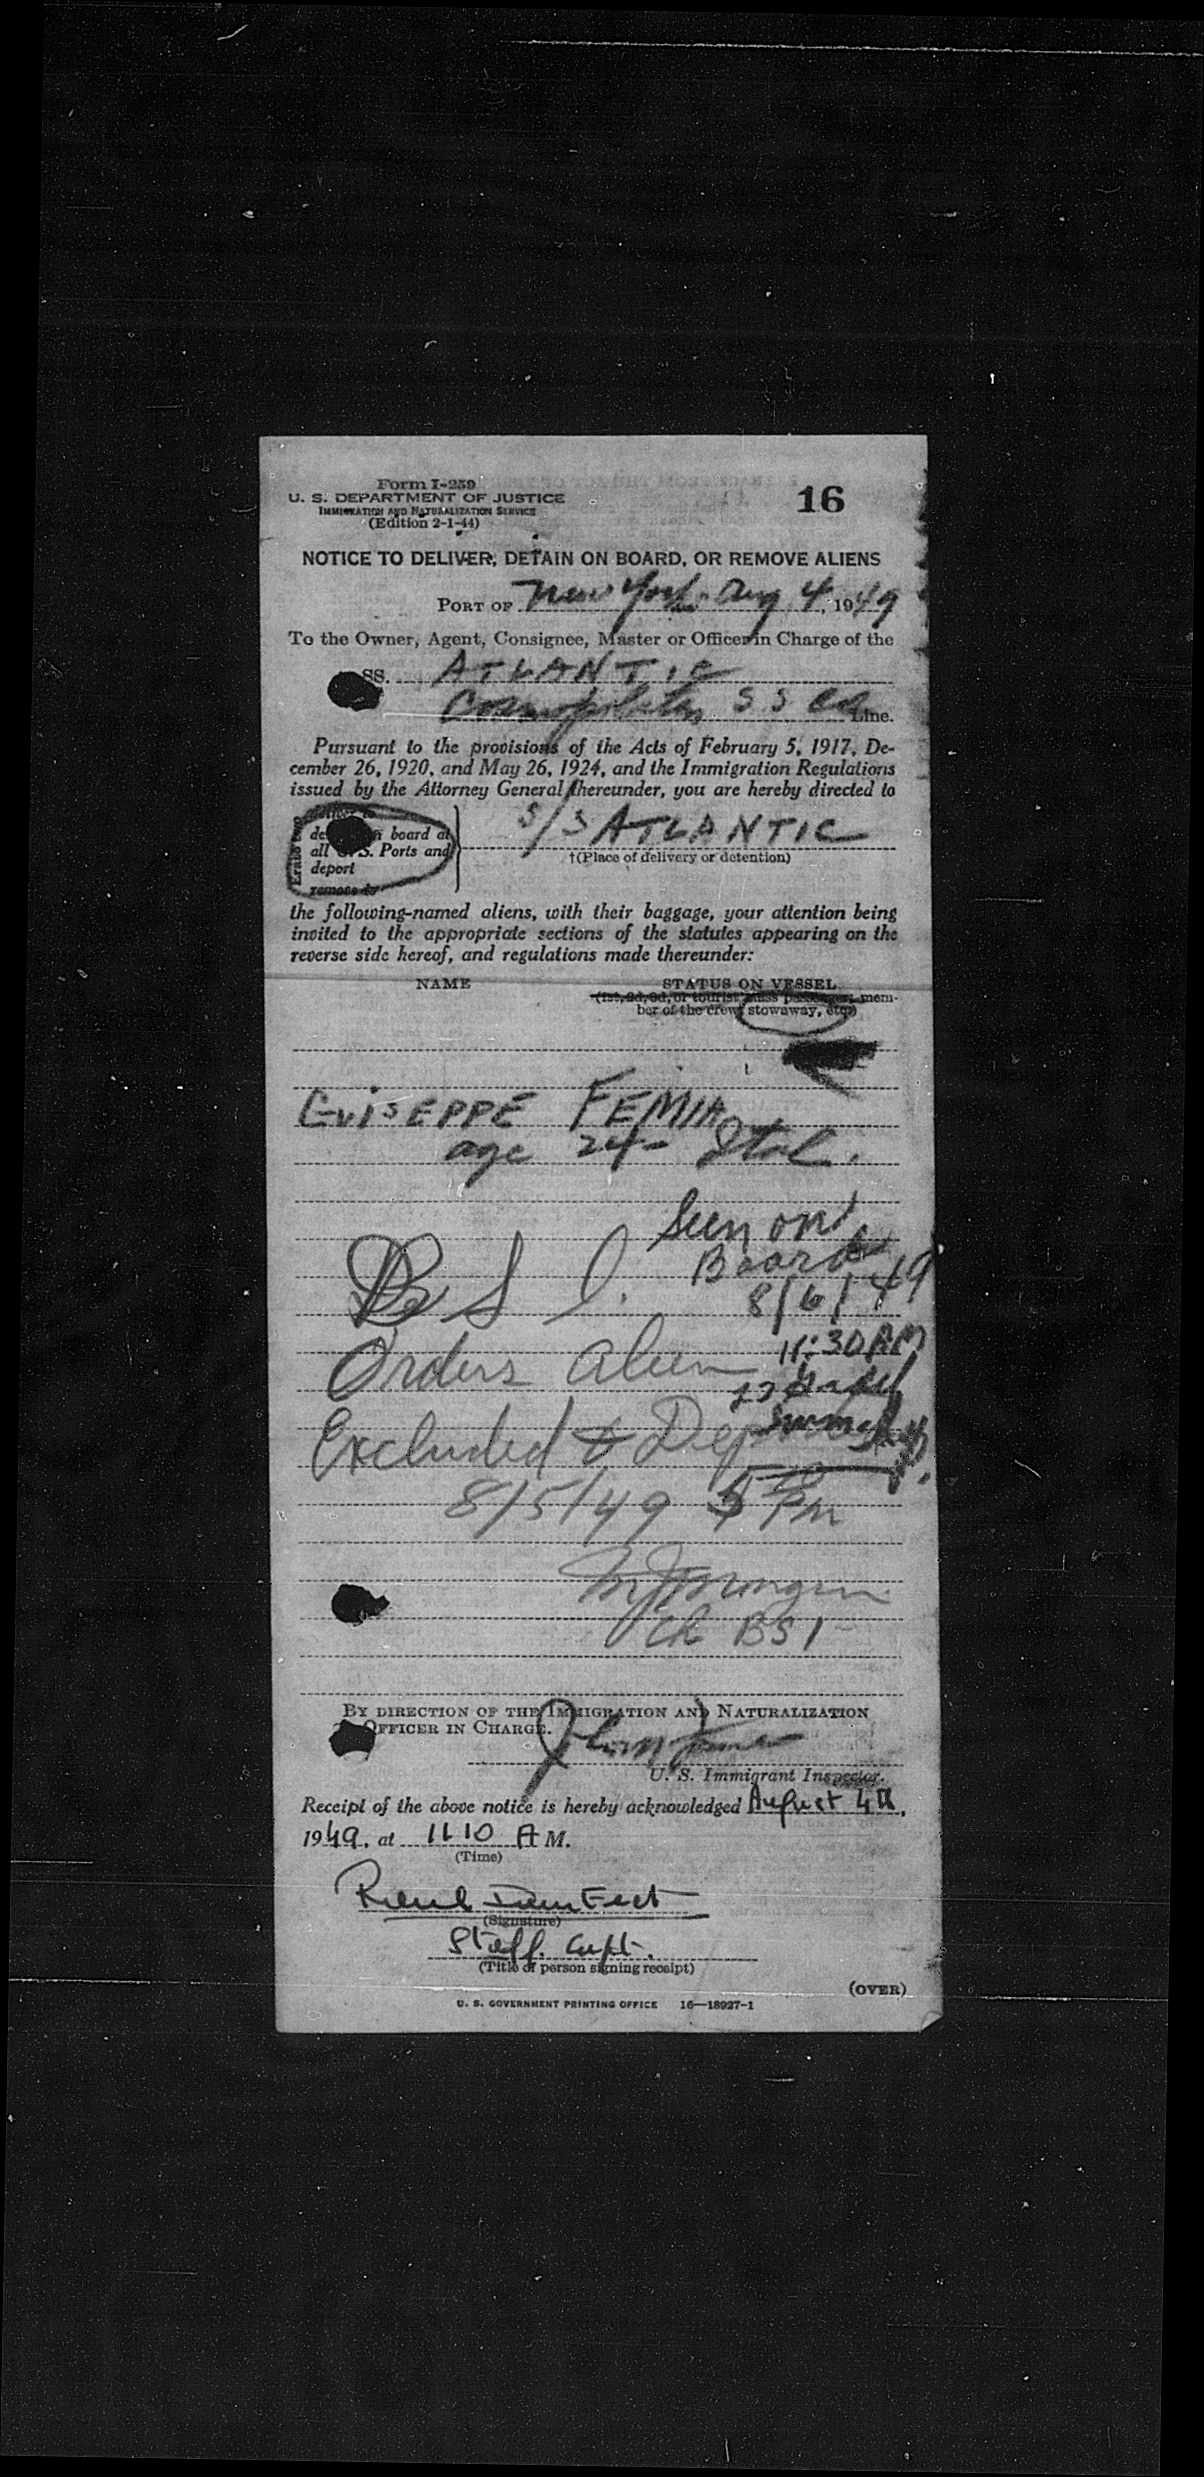 Form I-259
U. S. DEPARTMENT OF JUSTICE
IMMIGRATION AND NATURALIZATION SERVICE
(Edition 2-1-44)
16
NOTICE TO DELIVER, DETAIN ON BOARD, OR REMOVE ALIENS
PORT OF New York Aug 4, 1949
To the Owner, Agent, Consignee, Master or Officer in Charge of the
SS. ATLANTIC
Cosmopolitan S S Co Line.
Pursuant to the provisions of the Acts of February 5, 1917, De-
cember 26, 1920, and May 26, 1924, and the Immigration Regulations
issued by the Attorney General thereunder, you are hereby directed to
board at
all U. S. Ports and
deport
remove to
S/S ATLANTIC
†(Place of delivery or detention)
the following-named aliens, with their baggage, your attention being
invited to the appropriate sections of the statutes appearing on the
reverse side hereof, and regulations made thereunder:
NAME STATUS ON VESSEL
(1st, 2d, 3d, or tourist class passenger, mem-
ber of the crew, stowaway, etc.)
GUISEPPE FEMIA
age 24- Ital.
Seen on
Board
8/6/49
B S I.
11:30 AM
Orders alien
Excluded &
8/5/49 5 Pm
Ch BSI
BY DIRECTION OF THE IMMIGRATION AND NATURALIZATION
OFFICER IN CHARGE.
U. S. Immigrant Inspector.
Receipt of the above notice is hereby acknowledged August 4th,
1949, at 11 10 A M.
(Time)
(Signature)
Staff. Capt.
(Title of person signing receipt)
(OVER)
U. S. GOVERNMENT PRINTING OFFICE 16—18927-1